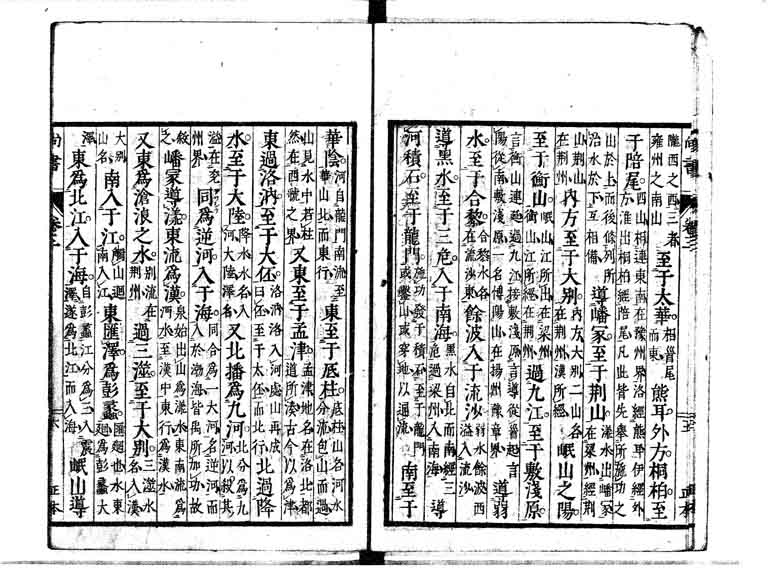 隴西之西三者雍州之南山至于太華相首尾而東熊耳外方桐柏至
于陪尾四山相連東南在豫州界洛經熊耳伊經外方淮出桐柏經陪尾凡此皆先舉所施功之
山於上而後條列所治水於下互相備導嶓冢至于荊山漾水出嶓冢在梁州經荊
山荊山在荊州内方至于大別内方大別二山名在荊州漢所經岷山之陽
至于衡山岷山江所出在梁州衡山江所經在荊州過九江至于敷淺原
言衡山連延過九江接敷淺原言導從首起言陽從南敷淺原一名博陽山在揚州豫章界導弱
水至于合黎合黎水名在流沙東餘波入于流沙弱水餘波西溢入流沙
導黑水至于三危入于南海黑水自北而南經三危過梁州入南海導
河積石至于龍門施功發于積石至于龍門或鑿山或穿地以通流南至于
尚書 卷三 正本
華陰河自龍門南流至華山北而東行東至于底柱底柱山名河水分流包山而過
山見水中若柱然在西虢之界又東至于孟津孟津地名在洛北都道所湊古今以為津
東過洛汭至于大伾洛汭洛入河處山再成曰伾至于大伾而北行北過降
水至于大陸降水水名入河大陸澤名又北播為九河北分為九河以殺其
溢在兗州界同為逆河入于海同合為一大河名逆河而入於渤海皆禹所加功故
敘之嶓冢導漾東流為漢泉始出山為漾水東南流為沔水至漢中東行為漢水
又東為滄浪之水別流在荊州過三澨至于大別三澨水名入漢
大別山名南入于江觸山迴南入江東匯澤為彭蠡匯迴也水東迴為彭蠡大
澤東為北江入于海自彭蠡江分為三入震澤遂為北江而入海岷山導
尚書 卷三 六 正本